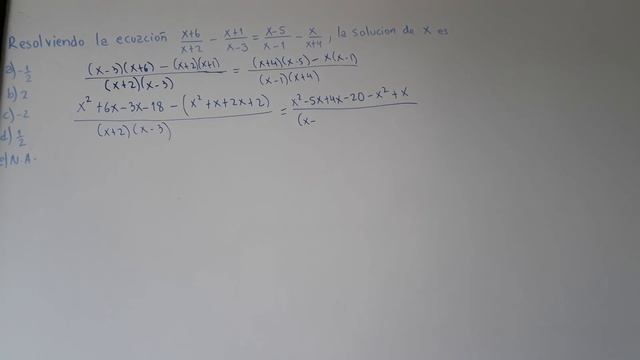 Resolviendo la ecuación (x+6)/(x+2) - (x+1)/(x-3) = (x-5)/(x-1) - x/(x+4), la solucion de x es
a) -1/2
((x-3)(x+6) - (x+2)(x+1))/((x+2)(x-3)) = ((x+4)(x-5) - x(x-1))/((x-1)(x+4))
b) 2
(x²+6x-3x-18-(x²+x+2x+2))/((x+2)(x-3)) = (x²-5x+4x-20-x²+x)/((x-
c) -2
d) 1/2
e) N.A.